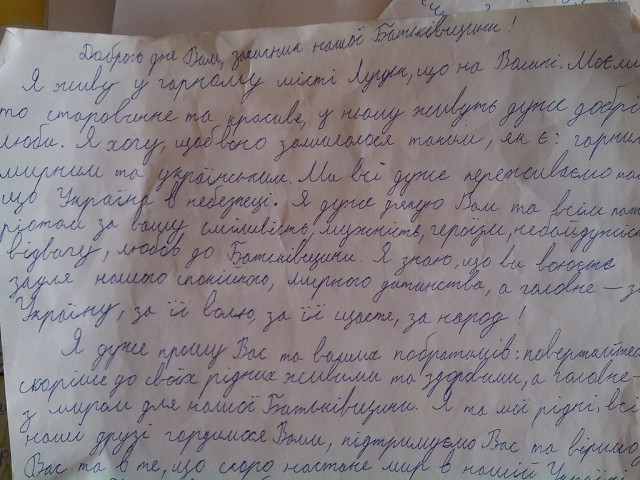 Доброго дня Вам, захисник нашої Батьківщини!
Я живу у гарному місті Луцьк, що на Волині. Моє мі
то старовинне та красиве, у ньому живуть дуже добрі
люби. Я хочу, щоб воно залишалося таким, як є: гарним
мирним та українським. Ми всі дуже переживаємо
що Україна в небезпеці. Я дуже дякую Вам та всім пат
ріотам за вашу сміливість, мужність, героїзм, небайдужість
відвагу, любов до Батьківщини. Я знаю, що ви воюєте
задля нашого спокійного, мирного дитинства, а головне – за
Україну, за її волю, за її щастя, за народ!
Я дуже прошу Вас та ваших побратимів: повертайтеся
скоріше до своїх рідних живими та здоровими, а головне-
з миром для нашої Батьківщини. Я та мої рідні, всі
наші друзі гордимося Вами, підтримуємо Вас та віримо
Вас та в те, що скоро настане мир в нашій Україні